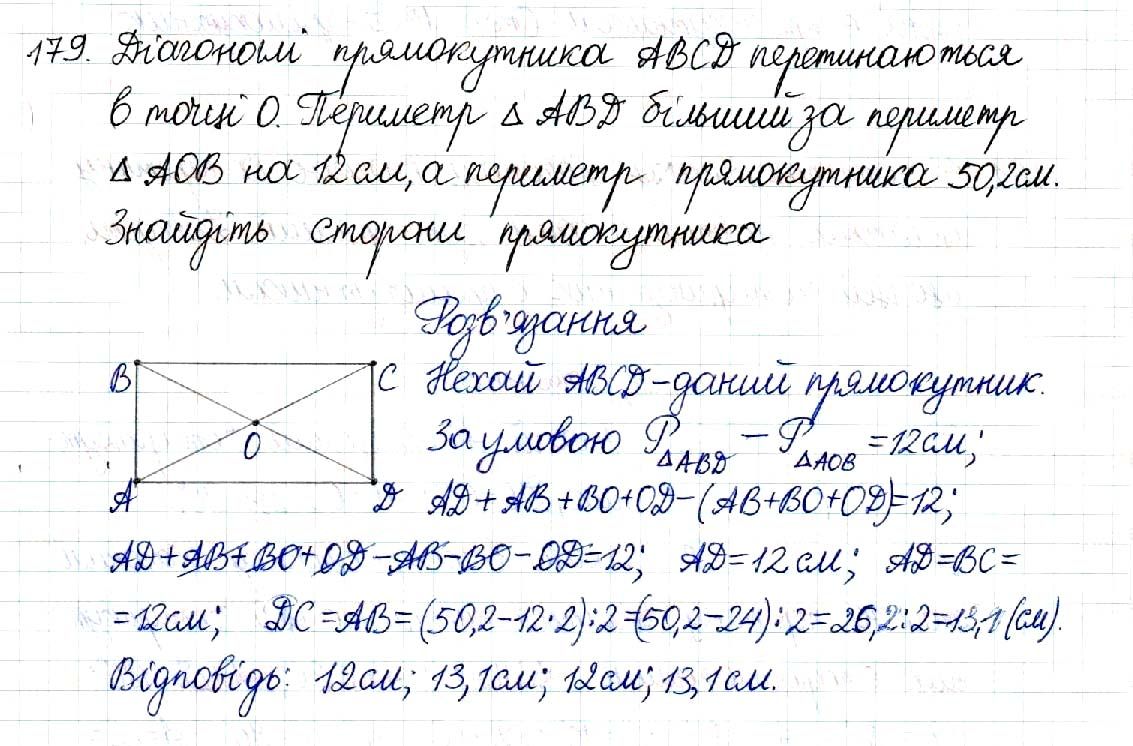 179. Діагоналі прямокутника ABCD перетинаються
в точці О. Периметр △ ABD більший за периметр
△ AOB на 12 см, а периметр прямокутника 50,2 см.
Знайдіть сторони прямокутника
Розв'язання
B C Нехай ABCD – даний прямокутник.
O За умовою P△ABD – P△AOB = 12 см;
A D AD + AB + BO + OD – (AB + BO + OD) = 12;
AD + AB + BO + OD – AB – BO – OD = 12; AD = 12 см; AD = BC =
= 12 см; DC = AB = (50,2 – 12 · 2) : 2 = (50,2 – 24) : 2 = 26,2 : 2 = 13,1 (см).
Відповідь: 12 см; 13,1 см; 12 см; 13,1 см.